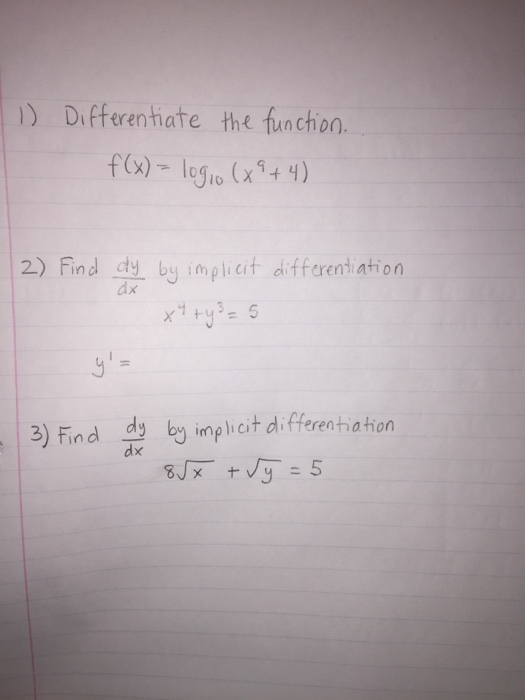 1) Differentiate the function.
f(x) = log₁₀ (x⁹ + 4)
2) Find dy/dx by implicit differentiation
x⁴ + y³ = 5
y' =
3) Find dy/dx by implicit differentiation
8√x + √y = 5